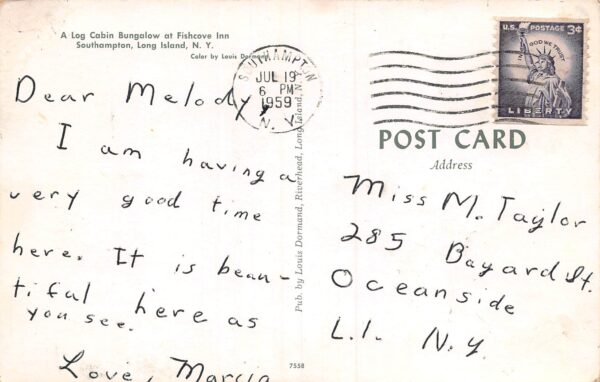 A Log Cabin Bungalow at Fishcove Inn
Southampton, Long Island, N. Y.
Color by Louis Dormand
SOUTHAMPTON
JUL 19
6 PM
1959
N. Y.
U.S. POSTAGE 3¢
IN GOD WE TRUST
LIBERTY
Dear Melody,
I am having a
very good time
here. It is beau-
tiful here as
you see.
Love, Marcia
Pub. by Louis Dormand, Riverhead, Long Island, N. Y.
7558
POST CARD
Address
Miss M. Taylor
285 Bayard St.
Oceanside
L.I. N.Y.